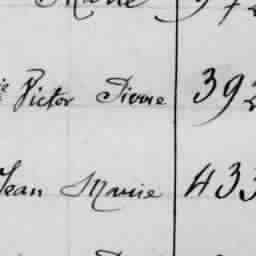 Marie
Victor Pierre 392
Jean Marie 433